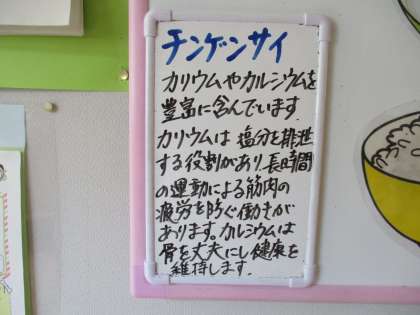 チンゲンサイ
カリウムやカルシウムを
豊富に含んでいます
カリウムは塩分を排泄
する役割があり長時間
の運動による筋肉の
疲労を防ぐ働きが
あります。カルシウムは
骨を丈夫にし健康を
維持します。